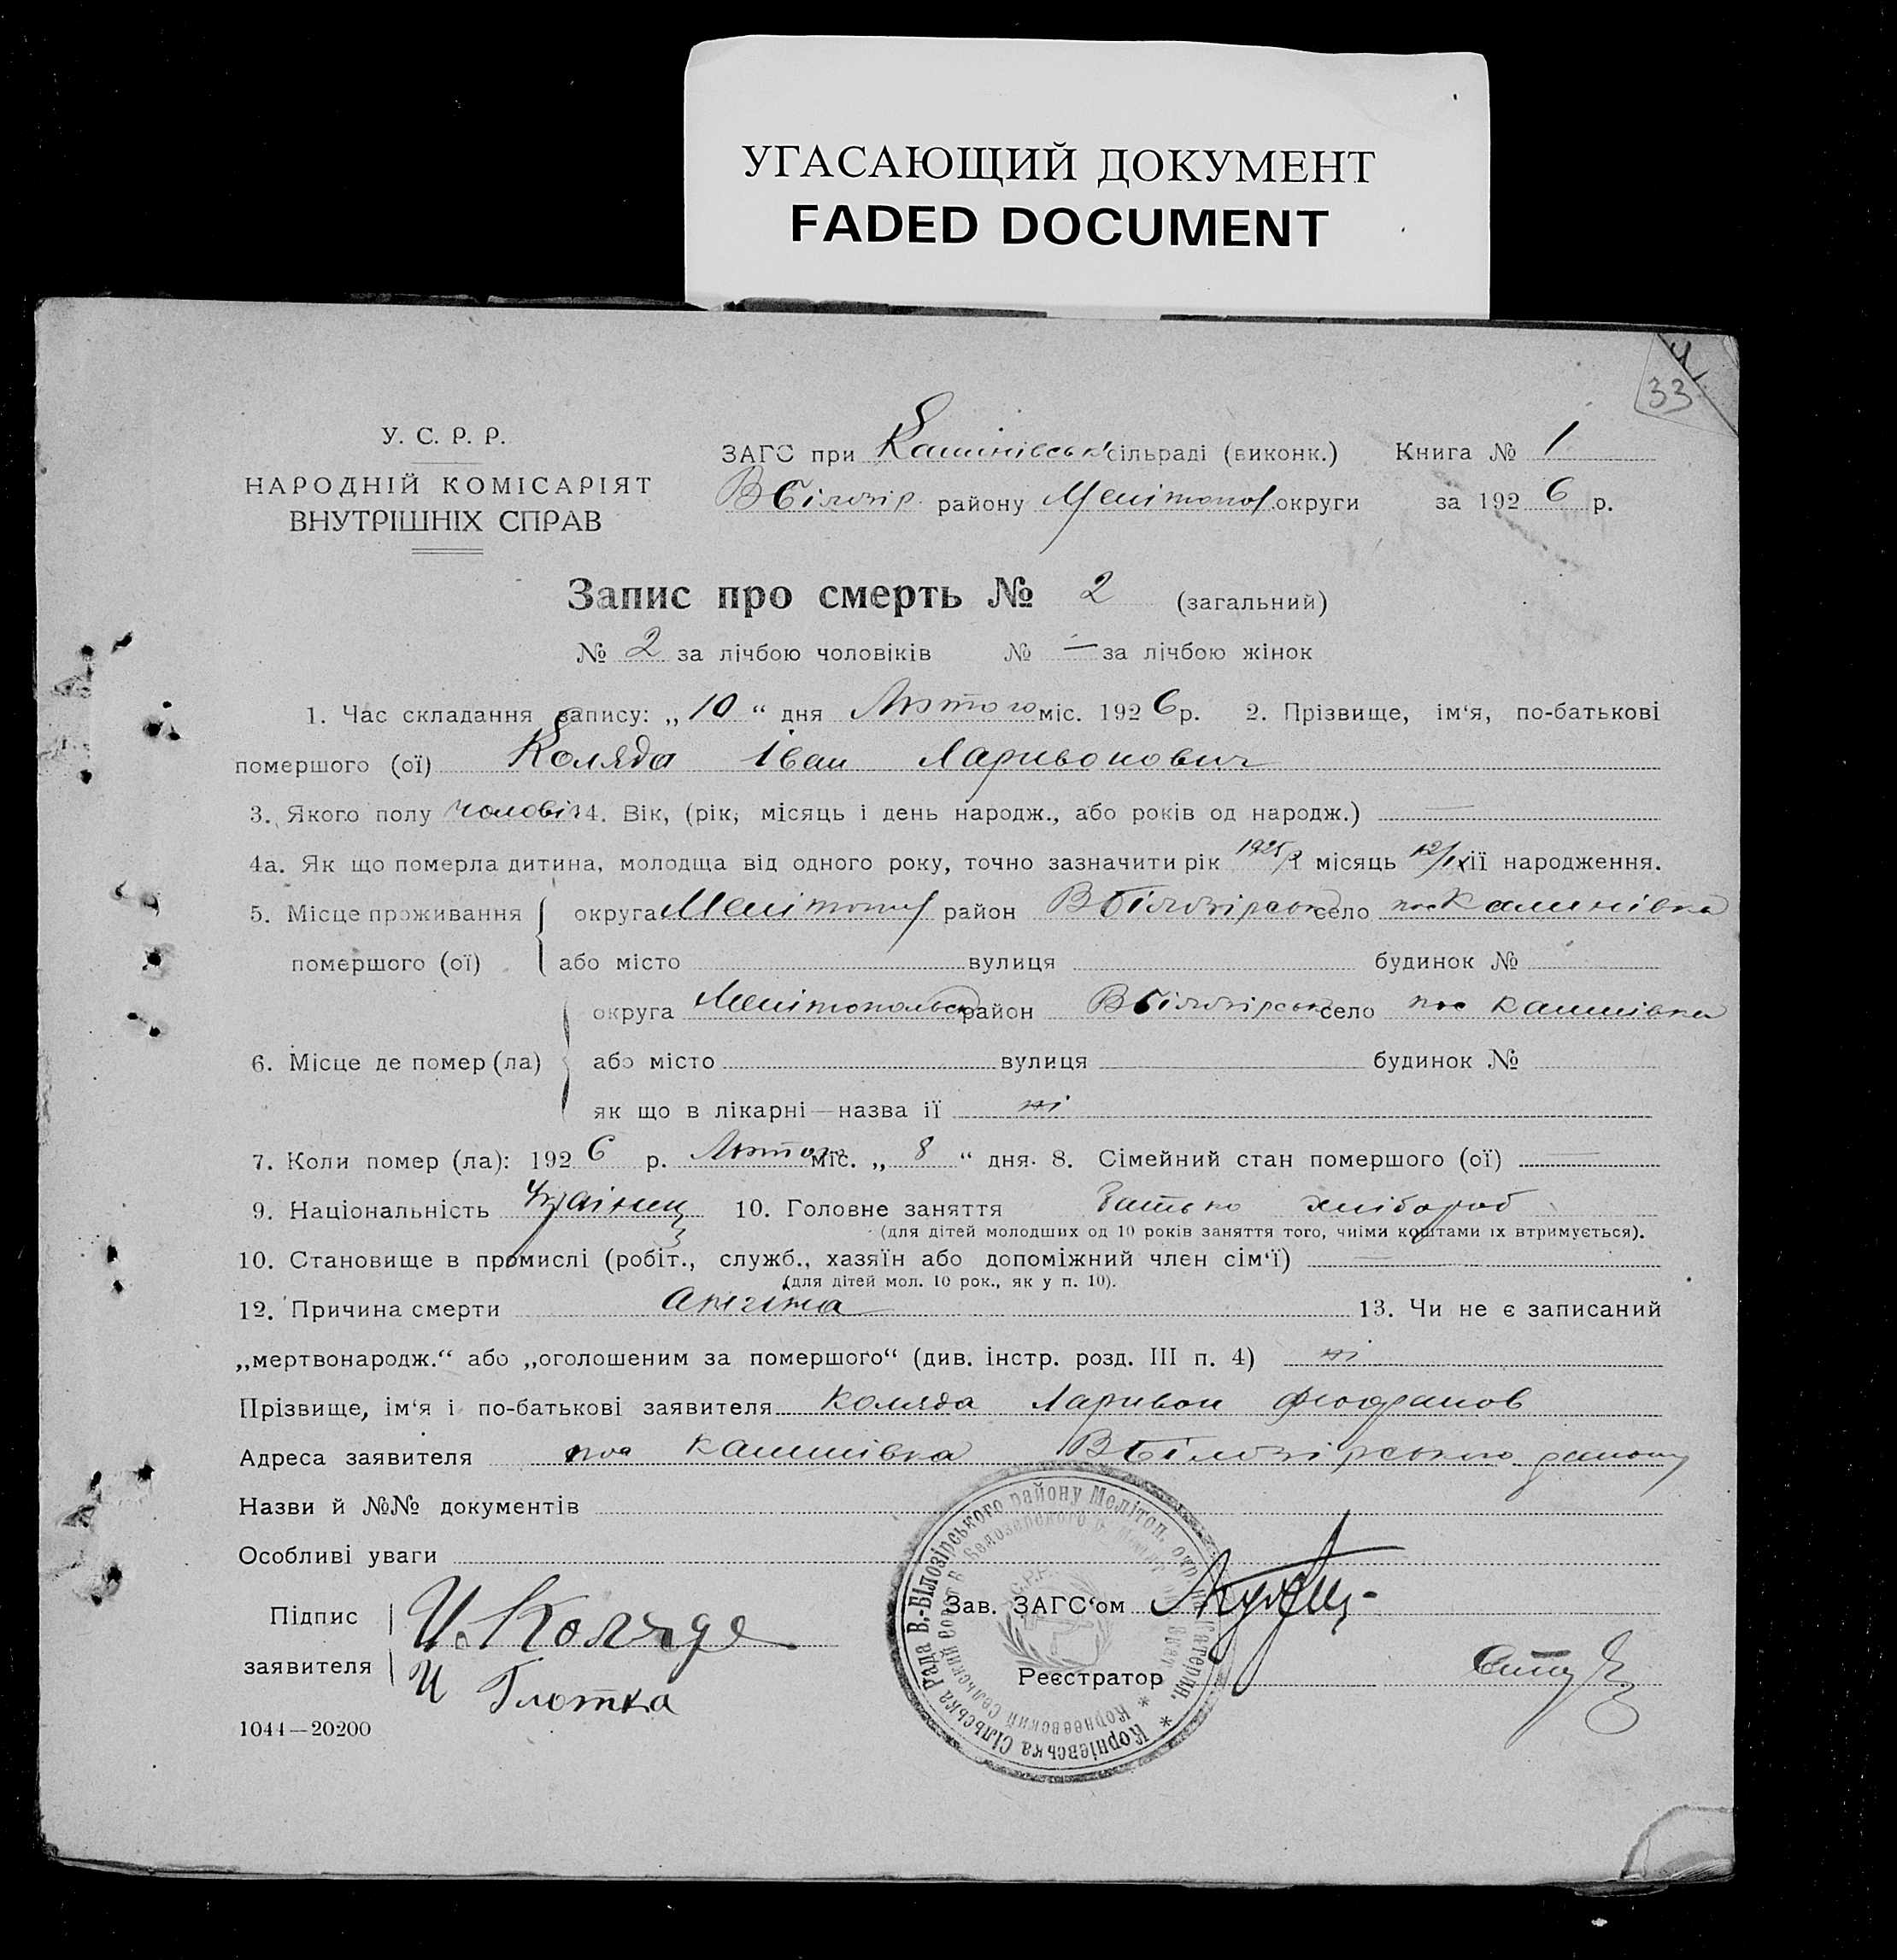 УГАСАЮЩИЙ ДОКУМЕНТ
FADED DOCUMENT
33
У. С. Р. Р.
НАРОДНІЙ КОМІСАРІЯТ
ВНУТРІШНІХ СПРАВ
ЗАГС при сільраді (виконк.) Книга № 1
В Білозір. району Мелітопол. округи за 1926 р.
Запис про смерть № 2 (загальний)
№ 2 за лічбою чоловіків № — за лічбою жінок
1. Час складання запису: „ 10 “ дня Лютого міс. 1926 р. 2. Прізвище, ім‘я, по-батькові
помершого (ої) Коляда Іван Ларивонович
3. Якого полу чоловіч 4. Вік, (рік, місяць і день народж., або років од народж.) —
4а. Як що померла дитина, молодща від одного року, точно зазначити рік 1925 місяць її народження.
5. Місце проживання округа Мелітопол район В Білозірськ село пос Калинівка
помершого (ої) або місто вулиця будинок №
округа Мелітопольськ район В Білозірськ село пос Калинівка
6. Місце де помер (ла) або місто вулиця будинок №
як що в лікарні—назва ії ні
7. Коли помер (ла): 1926 р. Лютого міс. „ 8 “ дня. 8. Сімейний стан помершого (ої) —
9. Національність Українец 10. Головне заняття батько хлібороб
(для дітей молодших од 10 років заняття того, чиїми коштами їх втримується).
10. Становище в промислі (робіт., служб., хазяїн або допоміжний член сім‘ї) —
(для дітей мол. 10 рок., як у п. 10).
12. Причина смерти 13. Чи не є записаний
„мертвонародж.“ або „оголошеним за помершого“ (див. інстр. розд. III п. 4) ні
Прізвище, ім‘я і по-батькові заявителя Коляда Ларивон
Адреса заявителя пос Калинівка В Білозірського району
Назви й №№ документів
Особливі уваги
Підпис И. Коляда Зав. ЗАГС‘ом
заявителя И Глотка Реєстратор
1044—20200
Корнієвська Сільська Рада В.-Білозірського району Мелітоп. окр. на Катерин.
Корнеевский Сельский совет В Белозерского